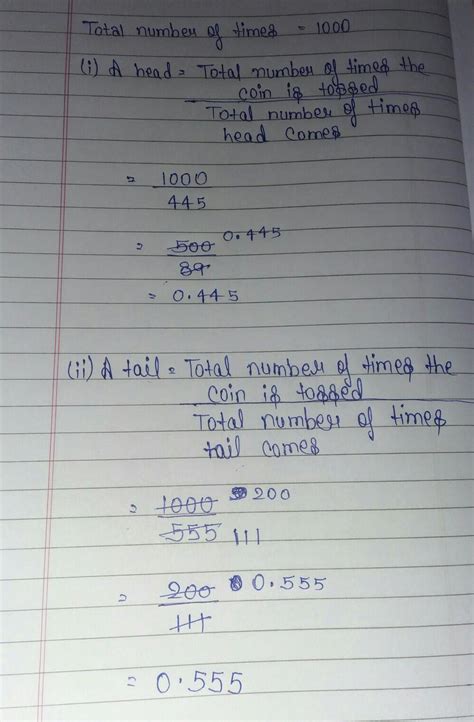 Total number of times = 1000
(i) A head = Total number of times the
coin is tossed
Total number of times
head comes
= 1000
445
= 500 0.445
89
= 0.445
(ii) A tail = Total number of times the
coin is tossed
Total number of times
tail comes
= 1000 200
555 111
= 200 0.555
111
= 0.555